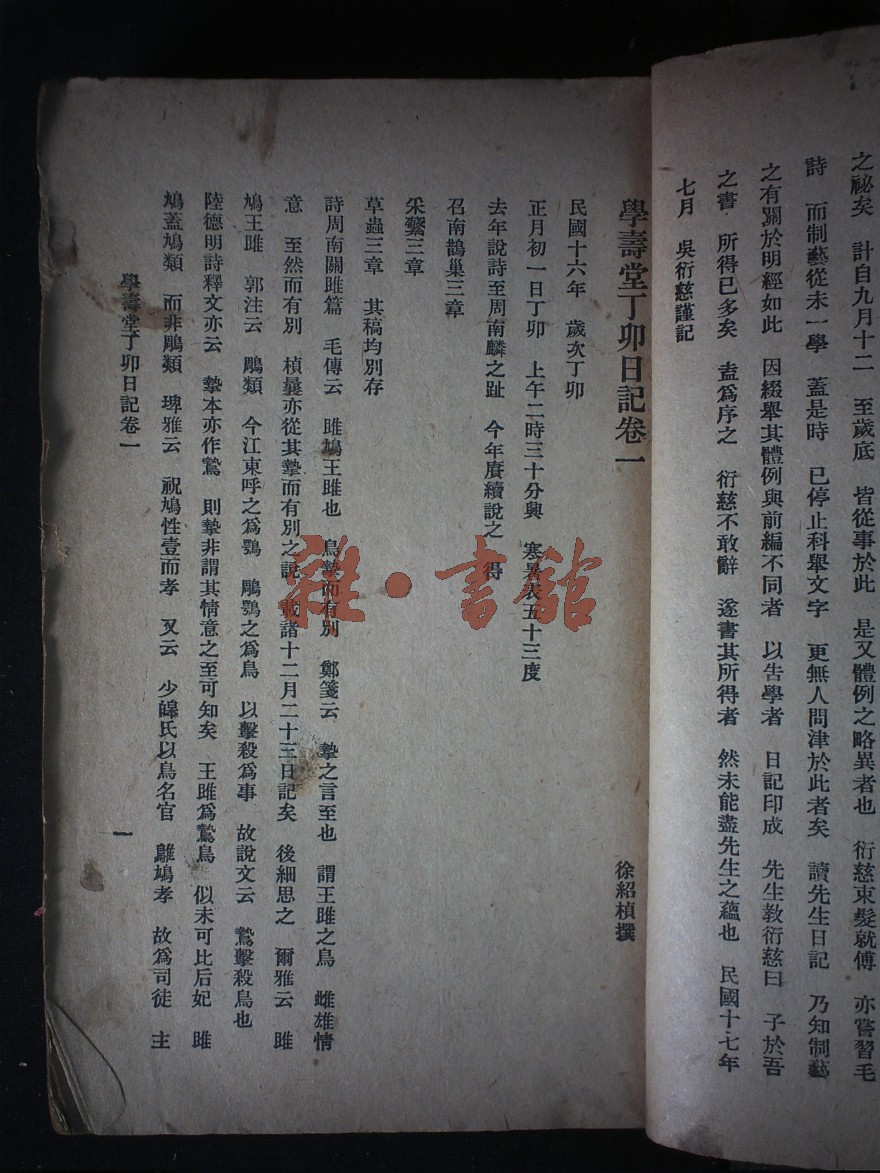 之祕矣　計自九月十二　至歲底　皆從事於此　是又體例之略異者也　衍慈束髮就傅　亦嘗習毛
詩　而制藝從未一學　蓋是時　已停止科舉文字　更無人問津於此者矣　讀先生日記　乃知制藝
之有關於明經如此　因綴舉其體例與前編不同者　以告學者　日記印成　先生教衍慈曰　子於吾
之書　所得已多矣　盍爲序之　衍慈不敢辭　遂書其所得者　然未能盡先生之蘊也　民國十七年
七月　吳衍慈謹記
學壽堂丁卯日記卷一
徐紹楨撰
民國十六年　歲次丁卯
正月初一日丁卯　上午二時三十分興　寒暑表五十三度
去年說詩至周南麟之趾　今年賡續說之　得
召南鵲巢三章
采蘩三章
草蟲三章　其稿均別存
詩周南關雎篇　毛傳云　雎鳩王雎也　鳥摯而有別　鄭箋云　摯之言至也　謂王雎之鳥　雌雄情
意　至然而有別　楨曩亦從其摯而有別之說　載諸十二月二十三日記矣　後細思之　爾雅云　雎
鳩王雎　郭注云　鵰類　今江東呼之爲鶚　鵰鶚之爲鳥　以擊殺爲事　故說文云　鷙擊殺鳥也
陸德明詩釋文亦云　摯本亦作鷙　則摯非謂其情意之至可知矣　王雎爲鷙鳥　似未可比后妃　雎
鳩蓋鳩類　而非鵰類　埤雅云　祝鳩性壹而孝　又云　少皞氏以鳥名官　鵻鳩孝　故爲司徒　主
學壽堂丁卯日記卷一
一
雜·書館